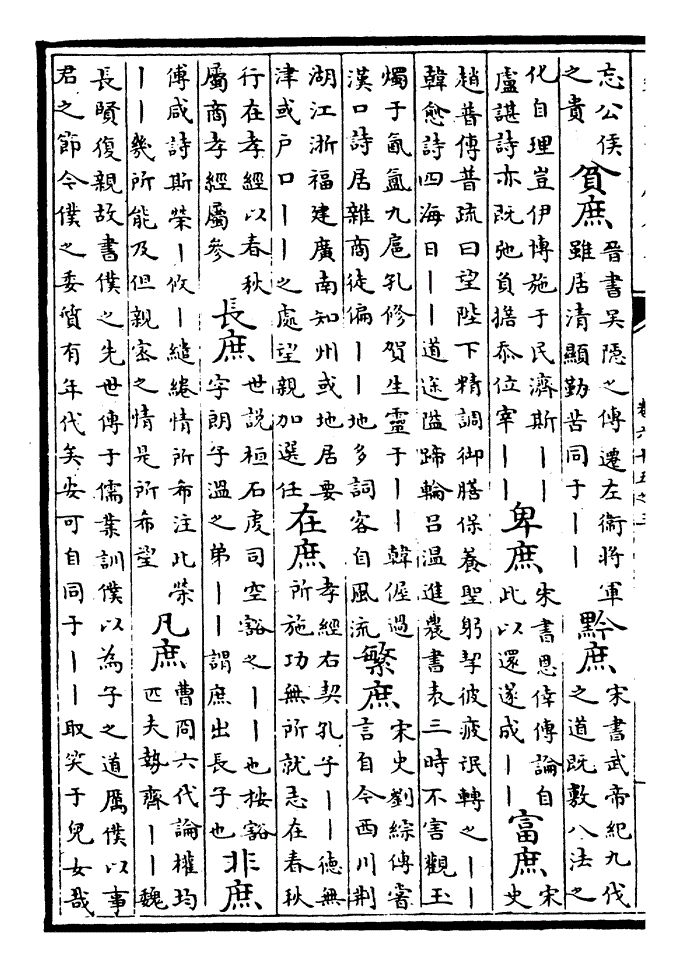 忘公侯
之貴
貧庶
晉書吴隱之傳遷左衞將軍
雖居清顯勤苦同于丨丨
黔庶
宋書武帝紀九代
之道既敷八法之
化自理豈伊博施于民濟斯丨丨
盧諶詩亦既弛負擔忝位宰丨丨
卑庶
宋書恩倖傳論自
此以還遂成丨丨
富庶
宋
史
趙普傳普疏曰望陛下精調御膳保養聖躬挈彼疲氓轉之丨丨
韓愈詩四海日丨丨道途隘蹄輪吕溫進農書表三時不害觀玉
燭于氤氲九扈孔修賀生靈于丨丨韓偓過
漢口詩居雜商徒偏丨丨地多詞客自風流
繁庶
宋史劉綜傳嘗
言自今西川荆
湖江浙福建廣南知州或地居要
津或户口丨丨之處望親加選任
在庶
孝經右契孔子丨丨德無
所施功無所就志在春秋
行在孝經以春秋
屬商孝經屬參
長庶
世說桓石虔司空豁之丨丨也按豁
字朗子溫之弟丨丨謂庶出長子也
非庶
傅咸詩斯榮丨攸丨繾綣情所希注此榮
丨丨幾所能及但親密之情是所希望
凡庶
曹冏六代論權均
匹夫勢齊丨丨魏
長賢復親故書僕之先世傳于儒業訓僕以為子之道厲僕以事
君之節今僕之委質有年代矣安可自同于丨丨取笑于兒女哉
卷六十五之三